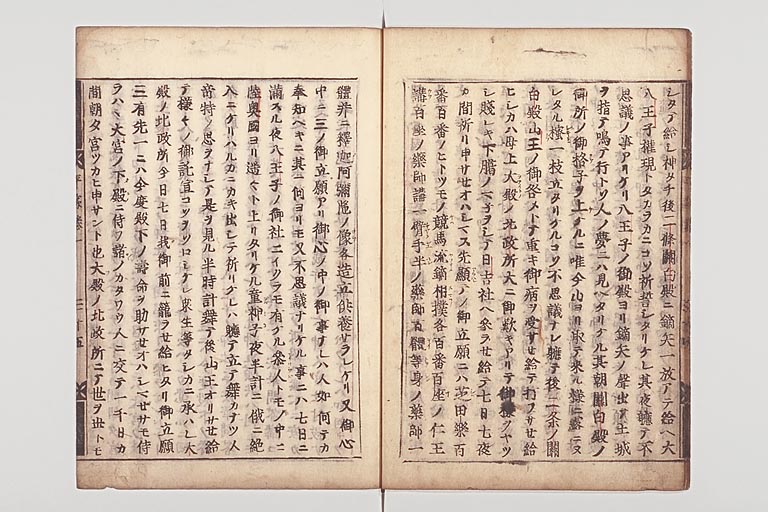 シタテ給シ神タチ後二條關白殿ニ鏑矢一放アテ給ヘト大
八王子權現トタカラカニコソ祈誓シタリケレ其夜軈テ不
思議ノ事アリケリ八王子ノ御殿ヨリ鏑矢ノ聲出テ王城
ヲ指テ鳴テ行トソ人ノ夢ニハ見ヘタリケル其朝關白殿ノ
御所ノ御格子ヲ上ケルニ唯今山ヨリ取テ來ル樣ニ露ニヌ
レタル樒一枝立タリケルコソ不思議ナレ軈テ後二条ノ關
白殿山王ノ御咎メトテ重キ御病ヲ受サセ給テ打フサセ給
ヒシカハ母上大殿ノ北政所大ニ御歎キアリテ御樣ヲヤツ
シ賤シキ下臈ノマネヲシテ日吉社ヘ參ラセ給テ七日七夜
カ間祈リ申サセオハシマス先願アノ御立願ニハ芝田樂百
番百番ノヒトツモノ競馬流鏑相撲各百番百座ノ仁王
講百座ノ藥師講一磔手半ノ藥師百體等身ノ藥師一
體并ニ釋迦阿彌陀ノ像各造立供養セラレケリ又御心
中ニ三ノ御立願アリ御心ノ中ノ御事ナレハ人如何テカ
奉知ヘキニ其ニ何ヨリモ又不思議ナリケル事ニハ七日ニ
滿スル夜八王子ノ御社ニイクラモ有ケル參人トモノ中ニ
陸奥國ヨリ遙々ト上リタリケル童神子夜半計ニ俄ニ絶
入ニケリハルカニカキ出シテ祈リケレハ軈テ立テ舞カナツ人
奇特ノ思ヲナシテ是ヲ見ル半時計舞テ後山王オリサセ給
テ樣々ノ御託宣コソヲソロシケレ衆生等タシカニ承ハレ大
殿ノ北政所今日七日我御前ニ籠ラセ給ヒタリ御立願
三有先一ニハ今度殿下ノ壽命ヲ助サセオハシマセサモ侍
ラハヽ大宮ノ下殿ニ侍フ諸ノカタワウ人ニ交テ一千日カ
間朝夕宮ツカヒ申サント也大殿ノ北政所ニテ世ヲ世トモ